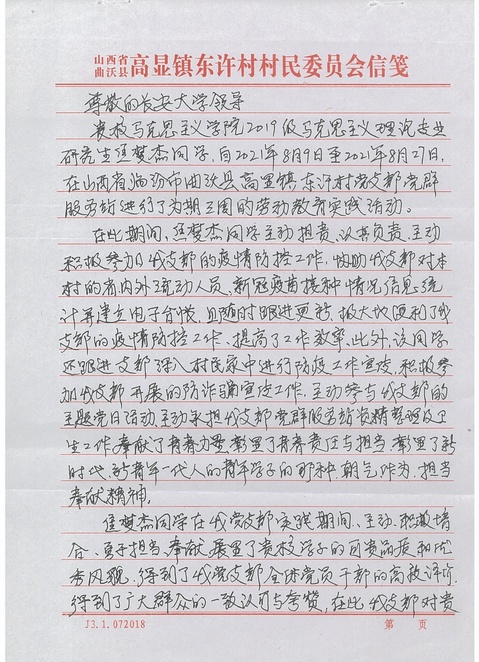 山西省
曲沃县 高显镇东许村村民委员会信笺
尊敬的长安大学领导
贵校马克思主义学院2019级马克思主义理论专业
研究生侯梦杰同学，自2021年8月9日至2021年8月27日，
在山西省临汾市曲沃县高显镇东许村党支部党群
服务站进行了为期三周的劳动教育实践活动。
在此期间，侯梦杰同学主动担责、认真负责、主动
积极参加我支部的疫情防控工作，协助我支部对本
村的省内外流动人员、新冠疫苗接种情况信息统
计并建立电子台账，且随时跟进更新，极大地便利了我
支部的疫情防控工作、提高了工作效率。此外，该同学
还跟进支部深入村民家中进行防疫工作宣传，积极参
加我支部开展的防诈骗宣传工作，主动参与我支部的
主题党日活动，主动承担我支部党群服务站资料整理及卫
生工作，奉献了青春力量，彰显了青春责任与担当，彰显了新
时代、新青年一代人的青年学子的那种朝气、作为、担当
奉献精神。
侯梦杰同学在我党支部实践期间、主动、积极
合、勇于担当、奉献，展显了贵校学子的可贵品质和优
秀风貌，得到了我党支部全体党员干部的高度评价，
得到了广大群众的一致认可与夸赞，在此我支部对贵
J3.1.072018 第 页